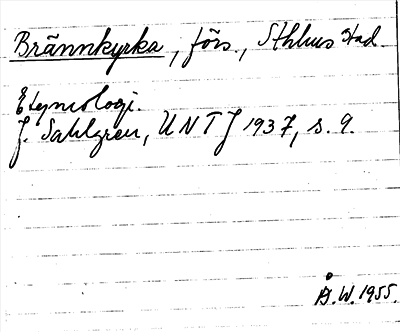 Brännkyrka, förs., Sthlms stad.
Etymologi.
J. Sahlgren, UNTJ 1937, s. 9.
Å.W. 1955.